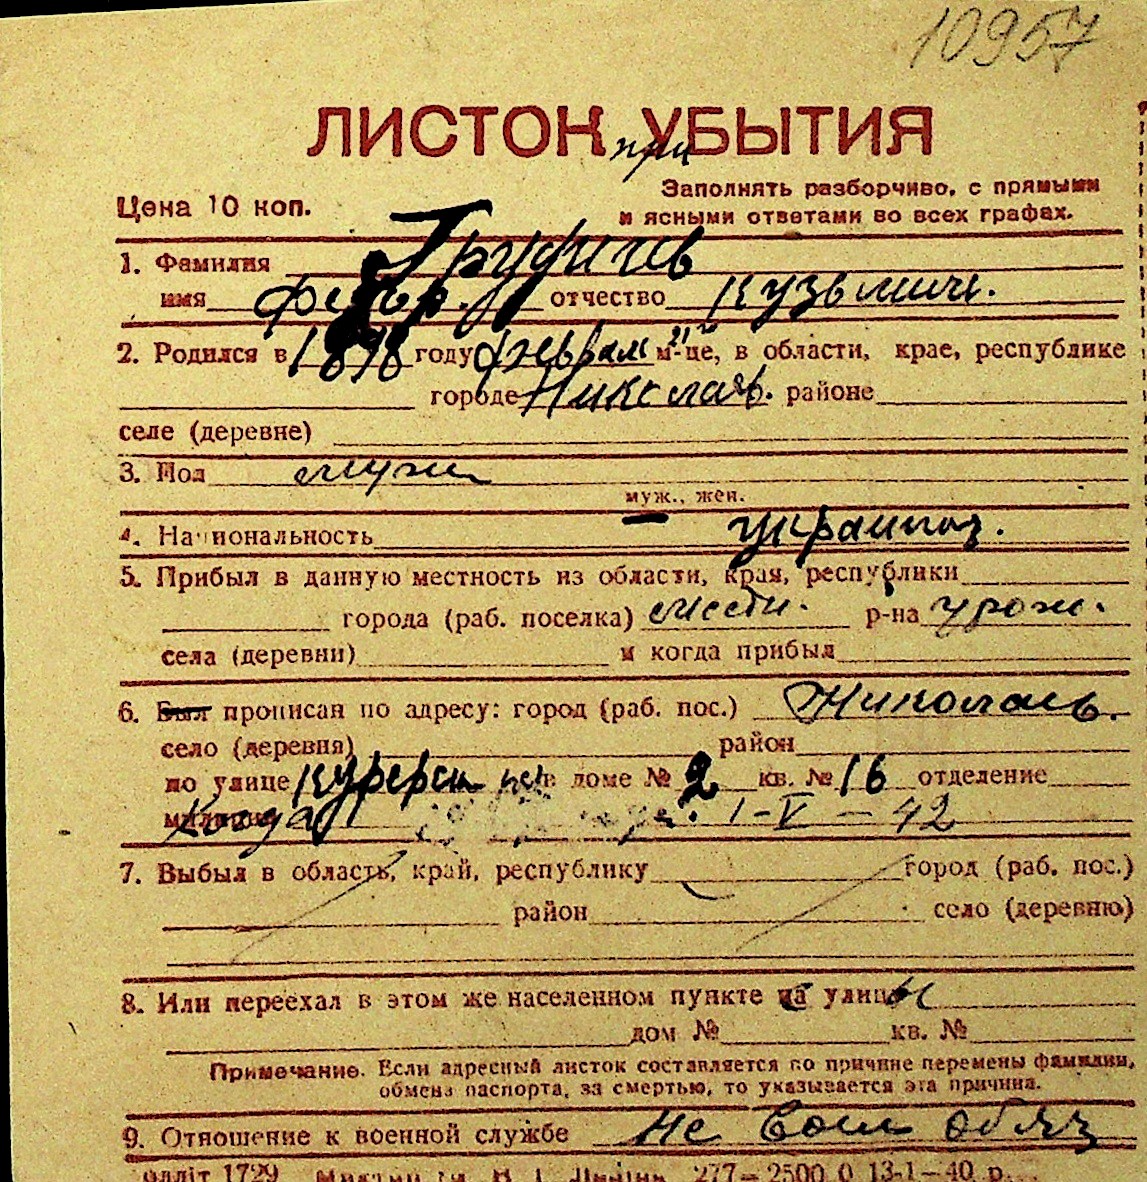 10957
ЛИСТОК УБЫТИЯ
при
Цена 10 коп.
Заполнять разборчиво, с прямыми
и ясными ответами во всех графах.
1. Фамилия
имя Федор. отчество Кузьмич.
2. Родился в 1878 году феврал м-це, в области, крае, республике
городе Николаев. районе
селе (деревне)
3. Пол мужч
муж., жен.
4. Национальность украинец.
5. Прибыл в данную местность из области, края, республики
города (раб. поселка) местн. р-на урож.
села (деревни) и когда прибыл
6. Был прописан по адресу: город (раб. пос.) Николаев.
село (деревня) район
по улице в доме № 2 кв. № 16 отделение
милиции Когда 1-V-42
7. Выбыл в область, край, республику город (раб. пос.)
район село (деревню)
8. Или переехал в этом же населенном пункте на улицу
дом № кв. №
Примечание. Если адресный листок составляется по причине перемены фамилии,
обмена паспорта, за смертью, то указывается эта причина.
9. Отношение к военной службе не воен обяз
1729 277—2500 0 13-1—40 р.